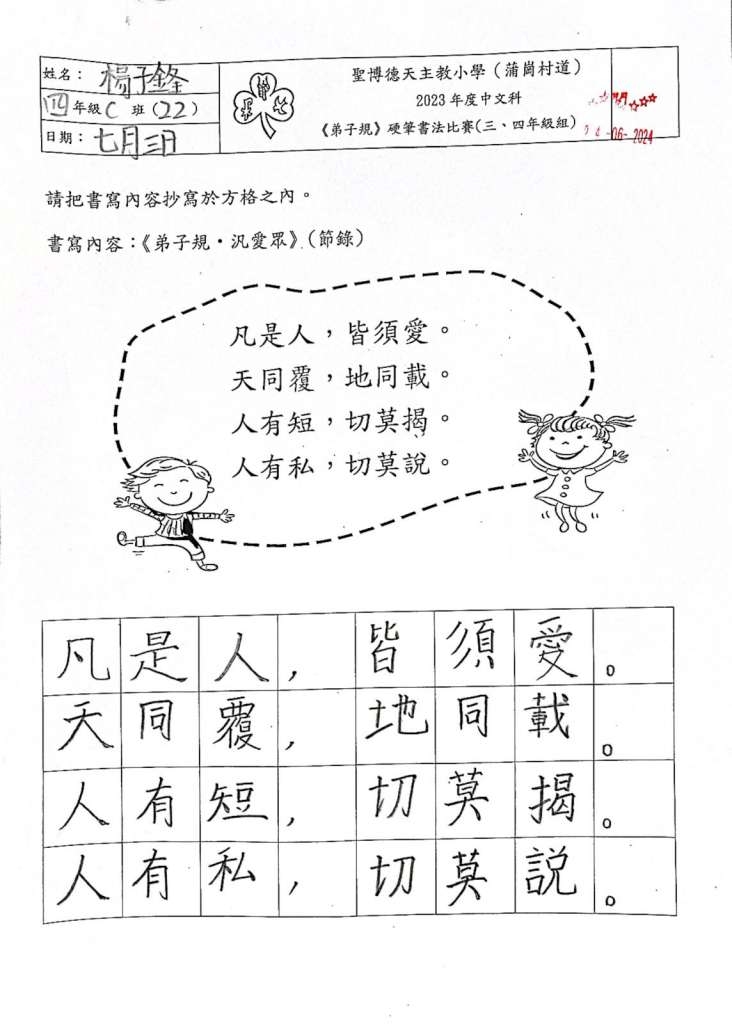 姓名： 楊子鋒
四年級 C 班（22）
日期： 七月三日
聖博德天主教小學（蒲崗村道）
2023 年度中文科
《弟子規》硬筆書法比賽（三、四年級組）
-06- 2024
請把書寫內容抄寫於方格之內。
書寫內容：《弟子規・汎愛眾》（節錄）
凡是人，皆須愛。
天同覆，地同載。
人有短，切莫揭。
人有私，切莫說。
凡是人，皆須愛。
天同覆，地同載。
人有短，切莫揭。
人有私，切莫說。